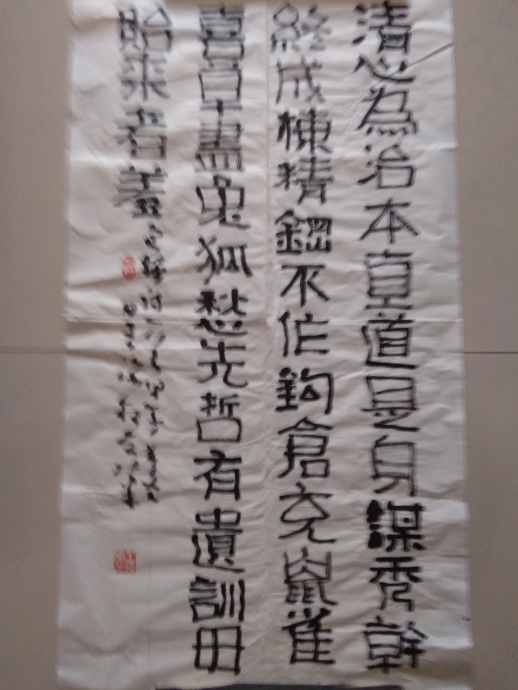 清心為治本直道是身謀秀幹
終成棟精鋼不作鉤倉充鼠雀
喜草盡兔狐愁先哲有遺訓毋
貽來者羞